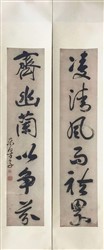 凌清風而祛累
齊幽蘭以争芬